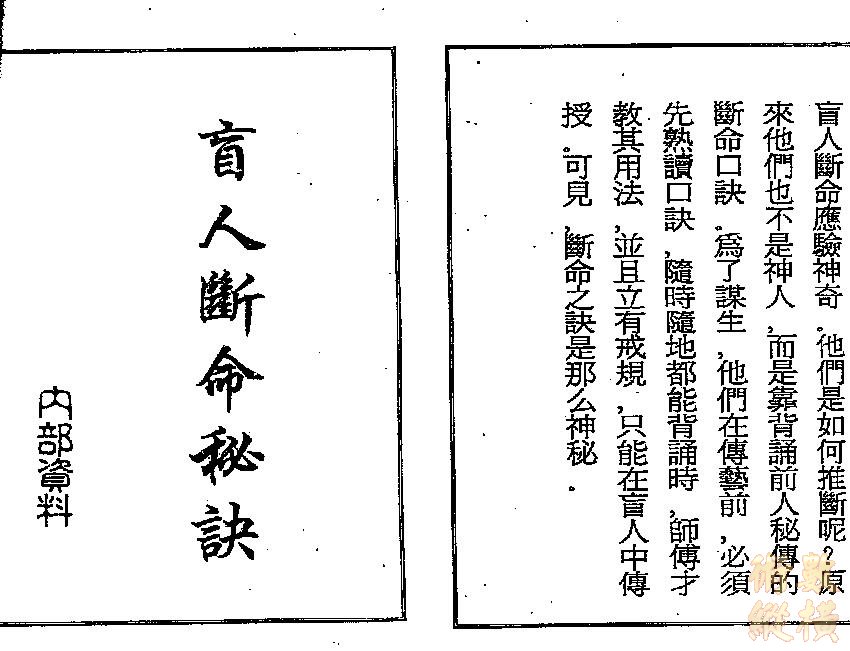 盲人斷命應驗神奇。他們是如何推斷呢？原
來他們也不是神人，而是靠背誦前人秘傳的
斷命口訣。爲了謀生，他們在傳藝前，必須
先熟讀口訣，隨時隨地都能背誦時，師傅才
教其用法，並且立有戒規，只能在盲人中傳
授。可見，斷命之訣是那么神秘．
盲人斷命秘訣
內部資料
數術
縱橫